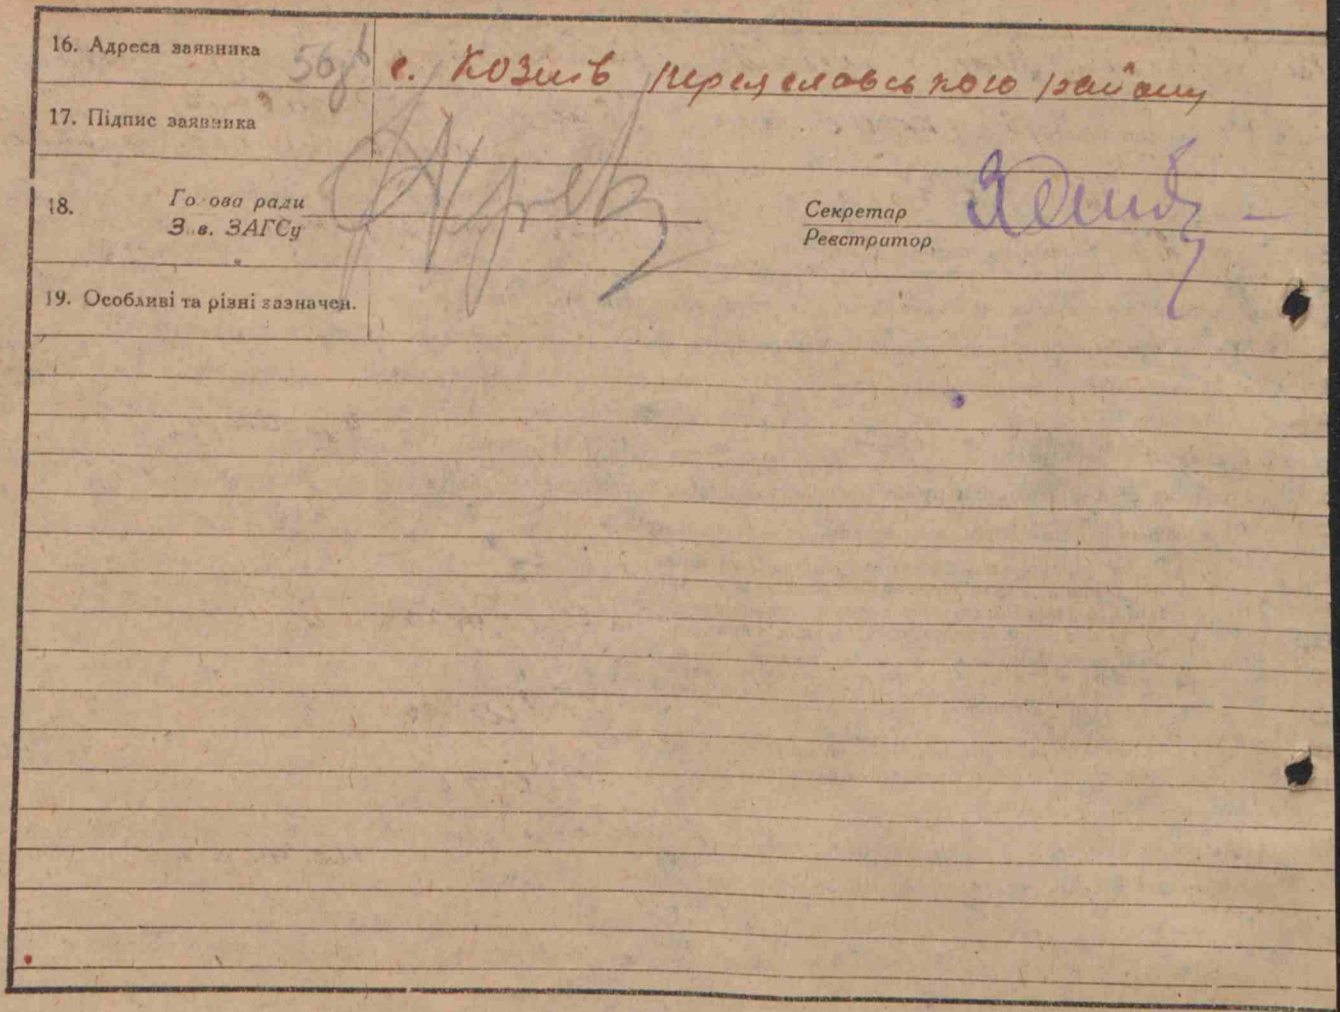 16. Адреса заявника с. Козлів Переяславського району
17. Підпис заявника
18. Голова ради
Зав. ЗАГСу
Секретар
Реєстратор
19. Особливі та різні зазначен.